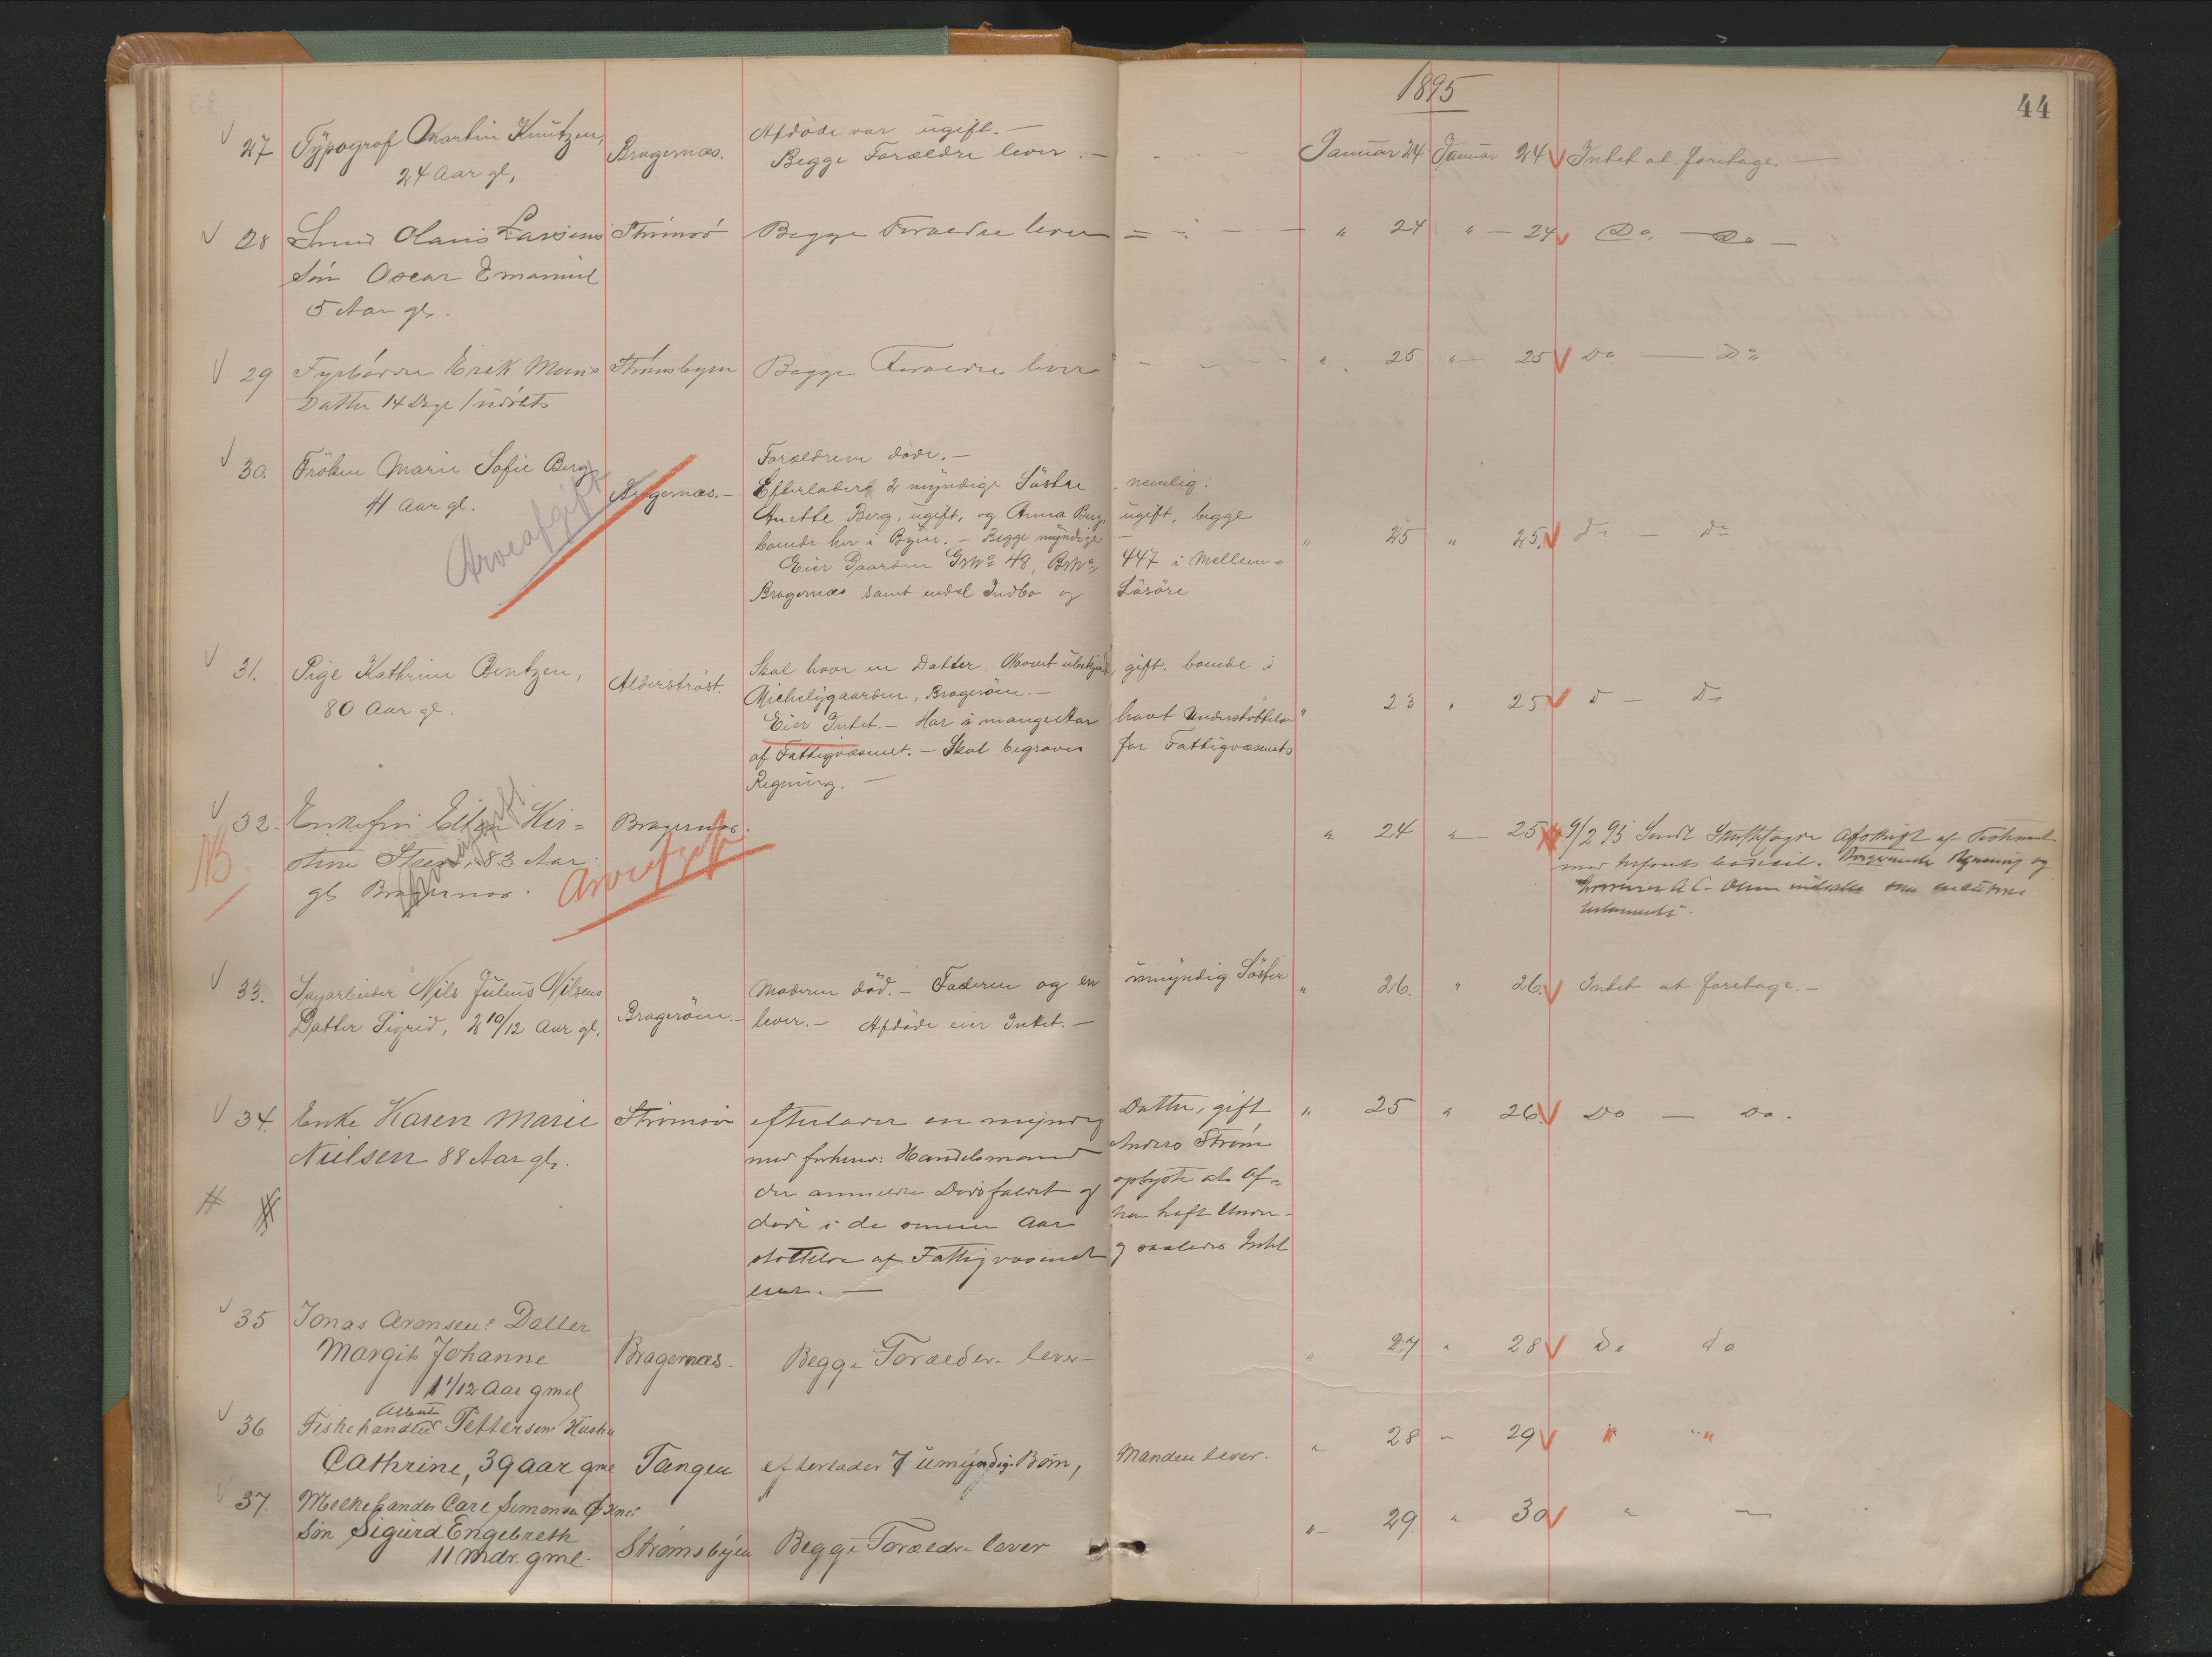 1895
44
27 Typograf Martin Knutzen, Bragernæs. Afdöde var ugift. — Januar 24 Januar 24 Intet at foretage. —
24 Aar gl, Begge Forældre lever. —
28 Smed Olaus Larsens Strömsö Begge Forældre lever " 24 " 24 Do. — Do —
Sön Oscar Emanuel
5 Aar gl.
29 Fyrbörder Erik Moens Strömsbyen Begge Forældre lever " 25 " 25 Do — Do
Datter 14 Dage / udöbt
30. Fröken Marie Sofie Berg Bragernæs. — Forældrene döde. —
41 Aar gl. Efterlader 2 myndige Söstre, nemlig:
Arveafgift
Anette Berg, ugift, og Anna Berg, ugift, begge
boende her i Byen. — Begge myndige — " 25 " 25. do — do
Eier Gaarden GrNo 48, BrNo 447 i Mellem-
Bragernæs samt endel Indbo og Lösöre
31. Pige Kathrine Bentzen, Alderströst. Skal have en Datter, Navnet ubekjendt, gift, boende i
80 Aar gl. Michelygaarden, Bragerøen. — 23 " 25 d — do
Eier Intet. — Har i mange Aar havt Understöttelse
af Fattigvæsenet. — Skal begraves for Fattigvæsenets
Regning. —
32. Enkefru Ellen Kir= Bragernæs. " 24 " 25 9/2 95 Sendt Afskrift af Testament
stine Steen, 83 Aar
gl Bragernæs.
NB
Arveafgift
Arveafgift
Regning og
A C. Olsen indsatte som
testamenti.
33. Sagarbeider Nils Julius Nilsens Bragerøen. — Moderen död. — Faderen og en umyndig Söster " 26. " 26. Intet at foretage. —
Datter Sigrid, 2 10/12 Aar gl. lever. — Afdöde eier Intet. —
34. Enke Karen Marie Strömsö efterlader en myndig Datter, gift " 25 " 26. Do — Do.
Nielsen 88 Aar gl. med Handelsmand Anders Ström
der anmeldte Dødsfaldet og oplyste at Af=
döde i de senere Aar har haft Under-
støttelse af Fattigvæsenet og saaledes Intet
eier. —
35 Jonas Aronsens Datter
Margit Johanne Bragernæs - Begge Forældre lever — " 27 " 28 do do
1 1/12 Aar gmel
36 Fiskehandler Albert Pettersens Hustru " 28 " 29 " "
Cathrine, 39 aar gme Tangen efterlader 7 umyndige Børn, Manden lever.
37. Melkehandler Carl Simensen
Søn Sigurd Engebreth Strømsbyen Begge Forældre lever " 29. " 30 "
11 mdr. gml.